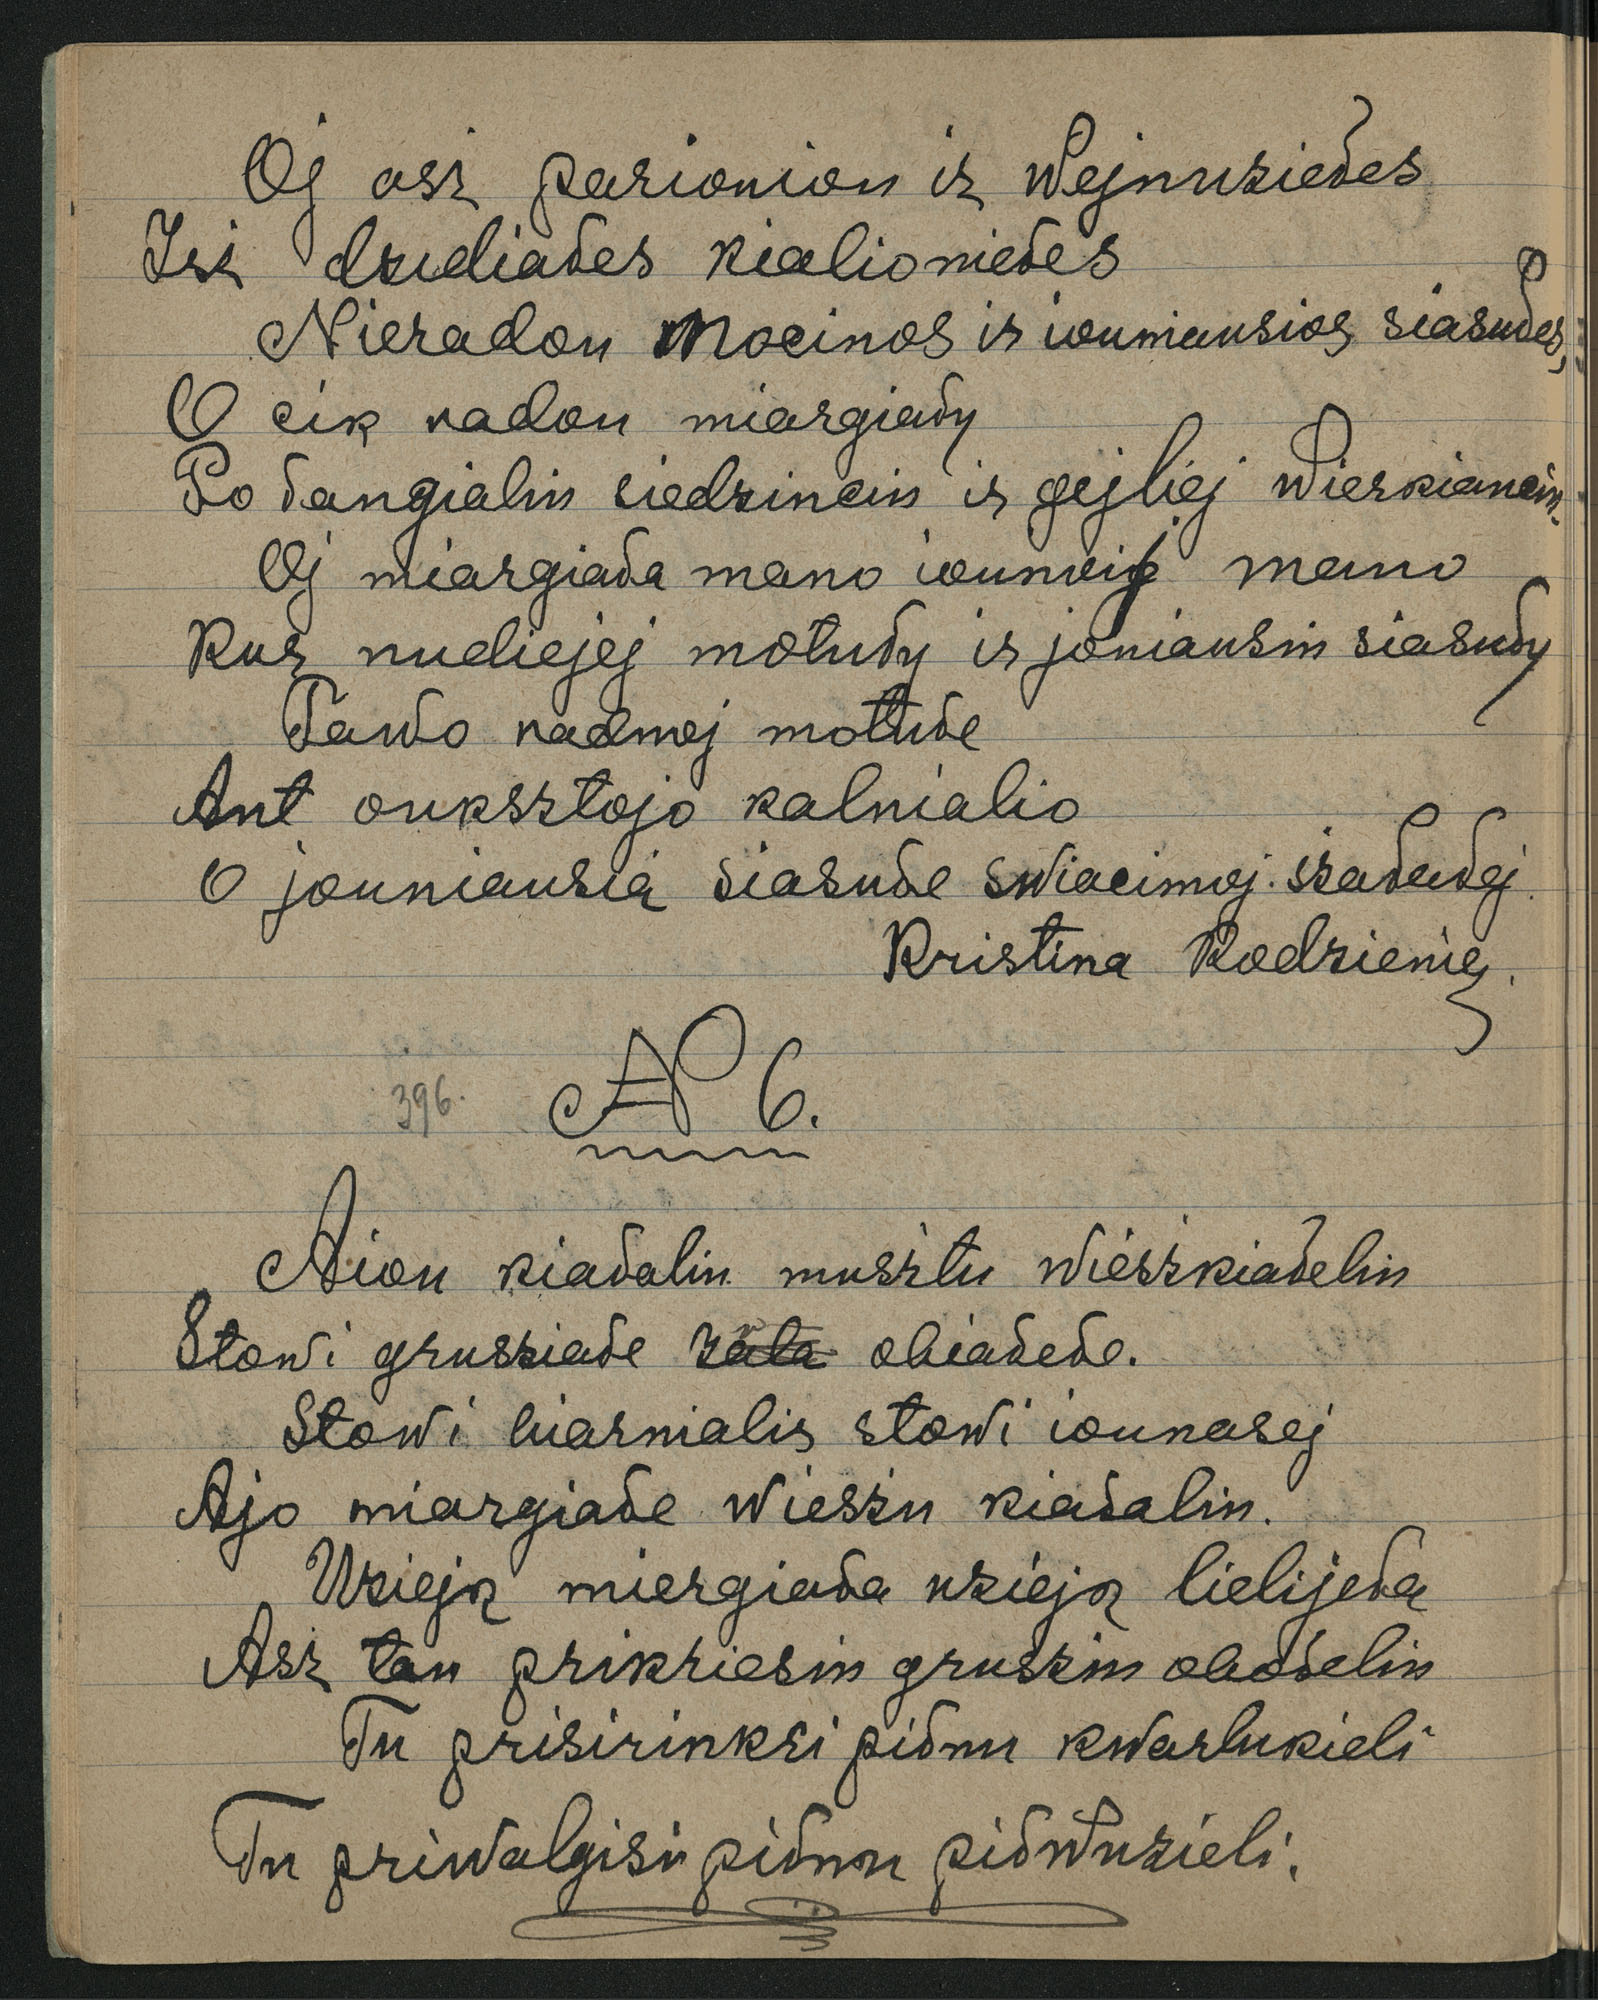 Oj asz parionion iz Wejnuziełes
Isz dzidiałes kialioniełes
Nieradou Mocinos ir iouniausios siasułes,
O cik radou miargiały
Po łangialiu siedzincin ir gejliej Wierkiancin.
Oj miargiała mano iounoij mano
Kur nudiejej motuły ir joniausiu siasuły
Tawo nadmoj motułe
Ant ouksztojo kalnialio
O jouniausią siasułe swiacimoj szalełej.
Kristina Rodzienię.
396. № 6.
Aiou kialaliu musztu wieszkialeliu
Stowi grusziałe obiałełe.
Stowi biarnialis stowi iounasej
Ajo miargiałe wieszu kialaliu.
Uziejk miergiała uziejk lielijełą
Asz tau prikriesiu gruszin obołeliu
Tu prisirinksi piłnu kwartukieli
Tu priwalgisi piłnou piłwuzieli.